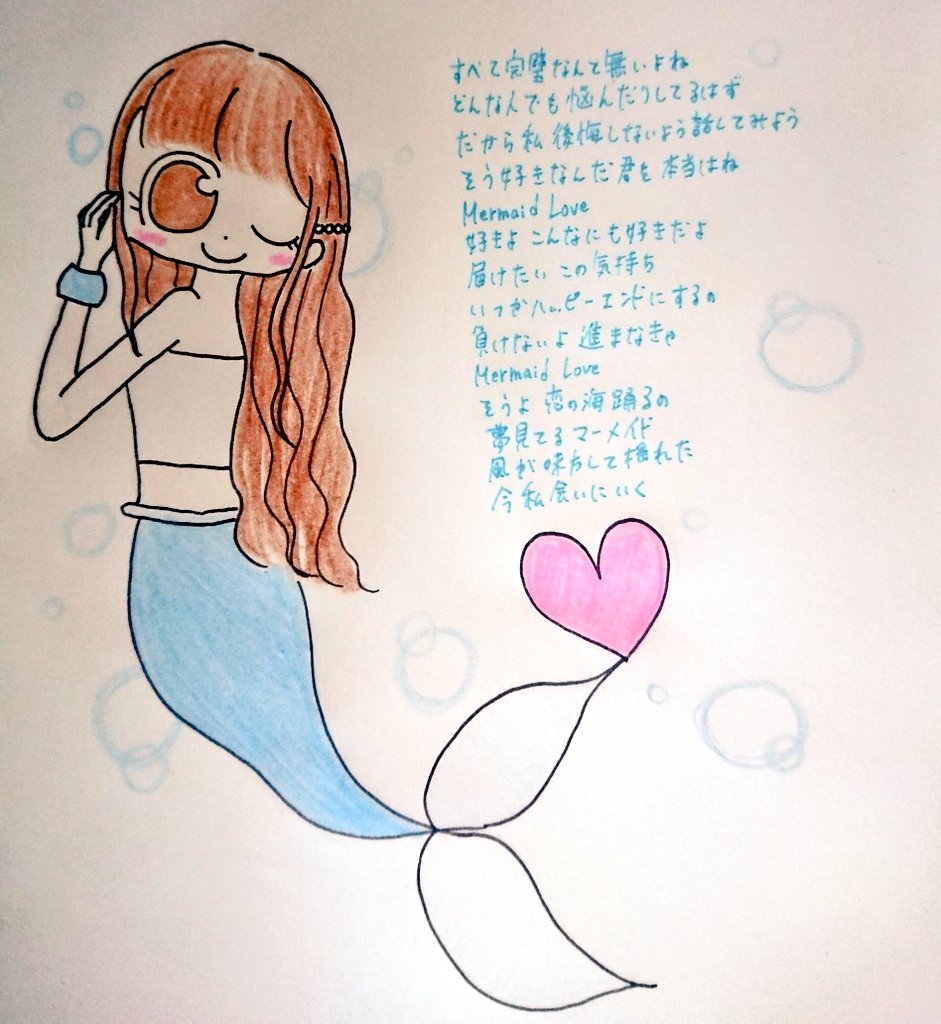 すべて完璧なんて無いよね
どんな人でも悩んだりしてるはず
だから私 後悔しないよう話してみよう
そう好きなんだ君を 本当はね
Mermaid Love
好きよ こんなにも好きだよ
届けたい この気持ち
いつかハッピーエンドにするの
負けないよ 進まなきゃ
Mermaid Love
そうよ 恋の海 踊るの
夢見てる マーメイド
風が 味方して 揺れた
今 私 会いにいく